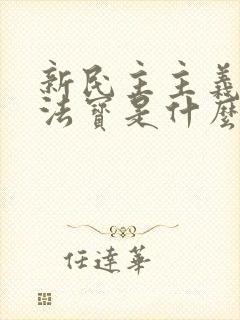 新民主主義
法寶是什麼
任達華